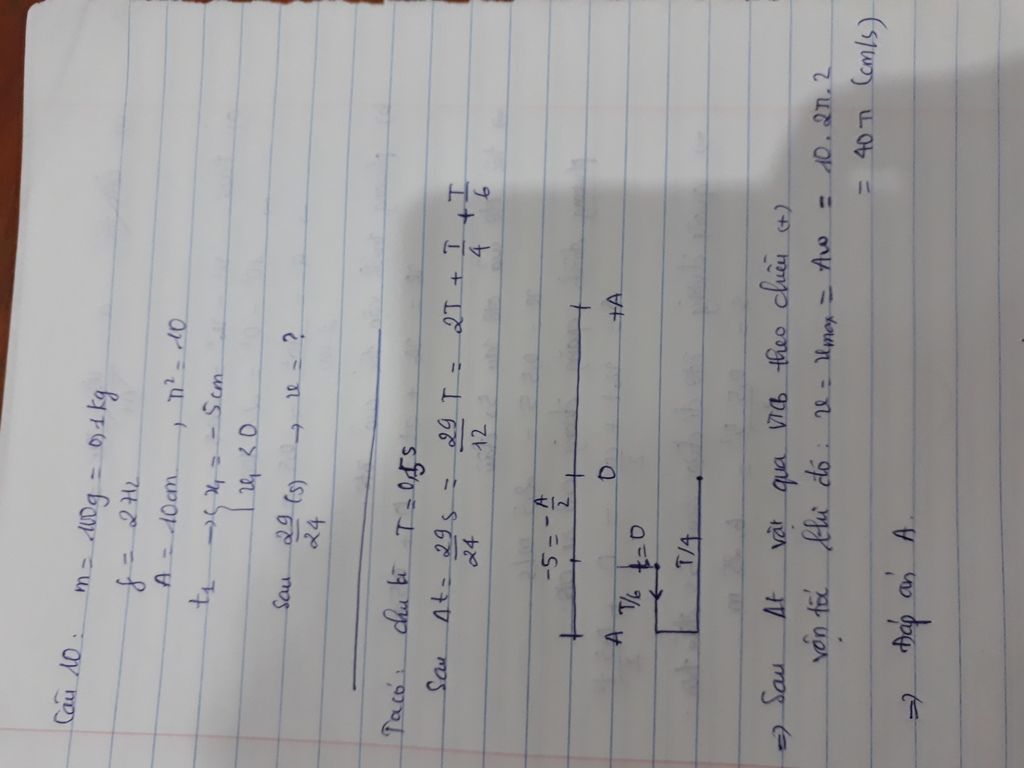 Câu 10: m = 100g = 0,1kg
f = 2Hz
A = 10cm, π² = 10
t₁ → { x₁ = -5cm
v₁ < 0
Sau 29/24 (s) → v = ?
Ta có: chu kì T = 0,5s
Sau Δt = 29/24 s = 29/12 T = 2T + T/4 + T/6
-5 = -A/2
A O +A
T/6 t=0
T/4
=> Sau Δt vật qua vtcb theo chiều (+)
vận tốc khi đó: v = vmax = Aω = 10.2π.2
= 40π (cm/s)
=> Đáp án A.